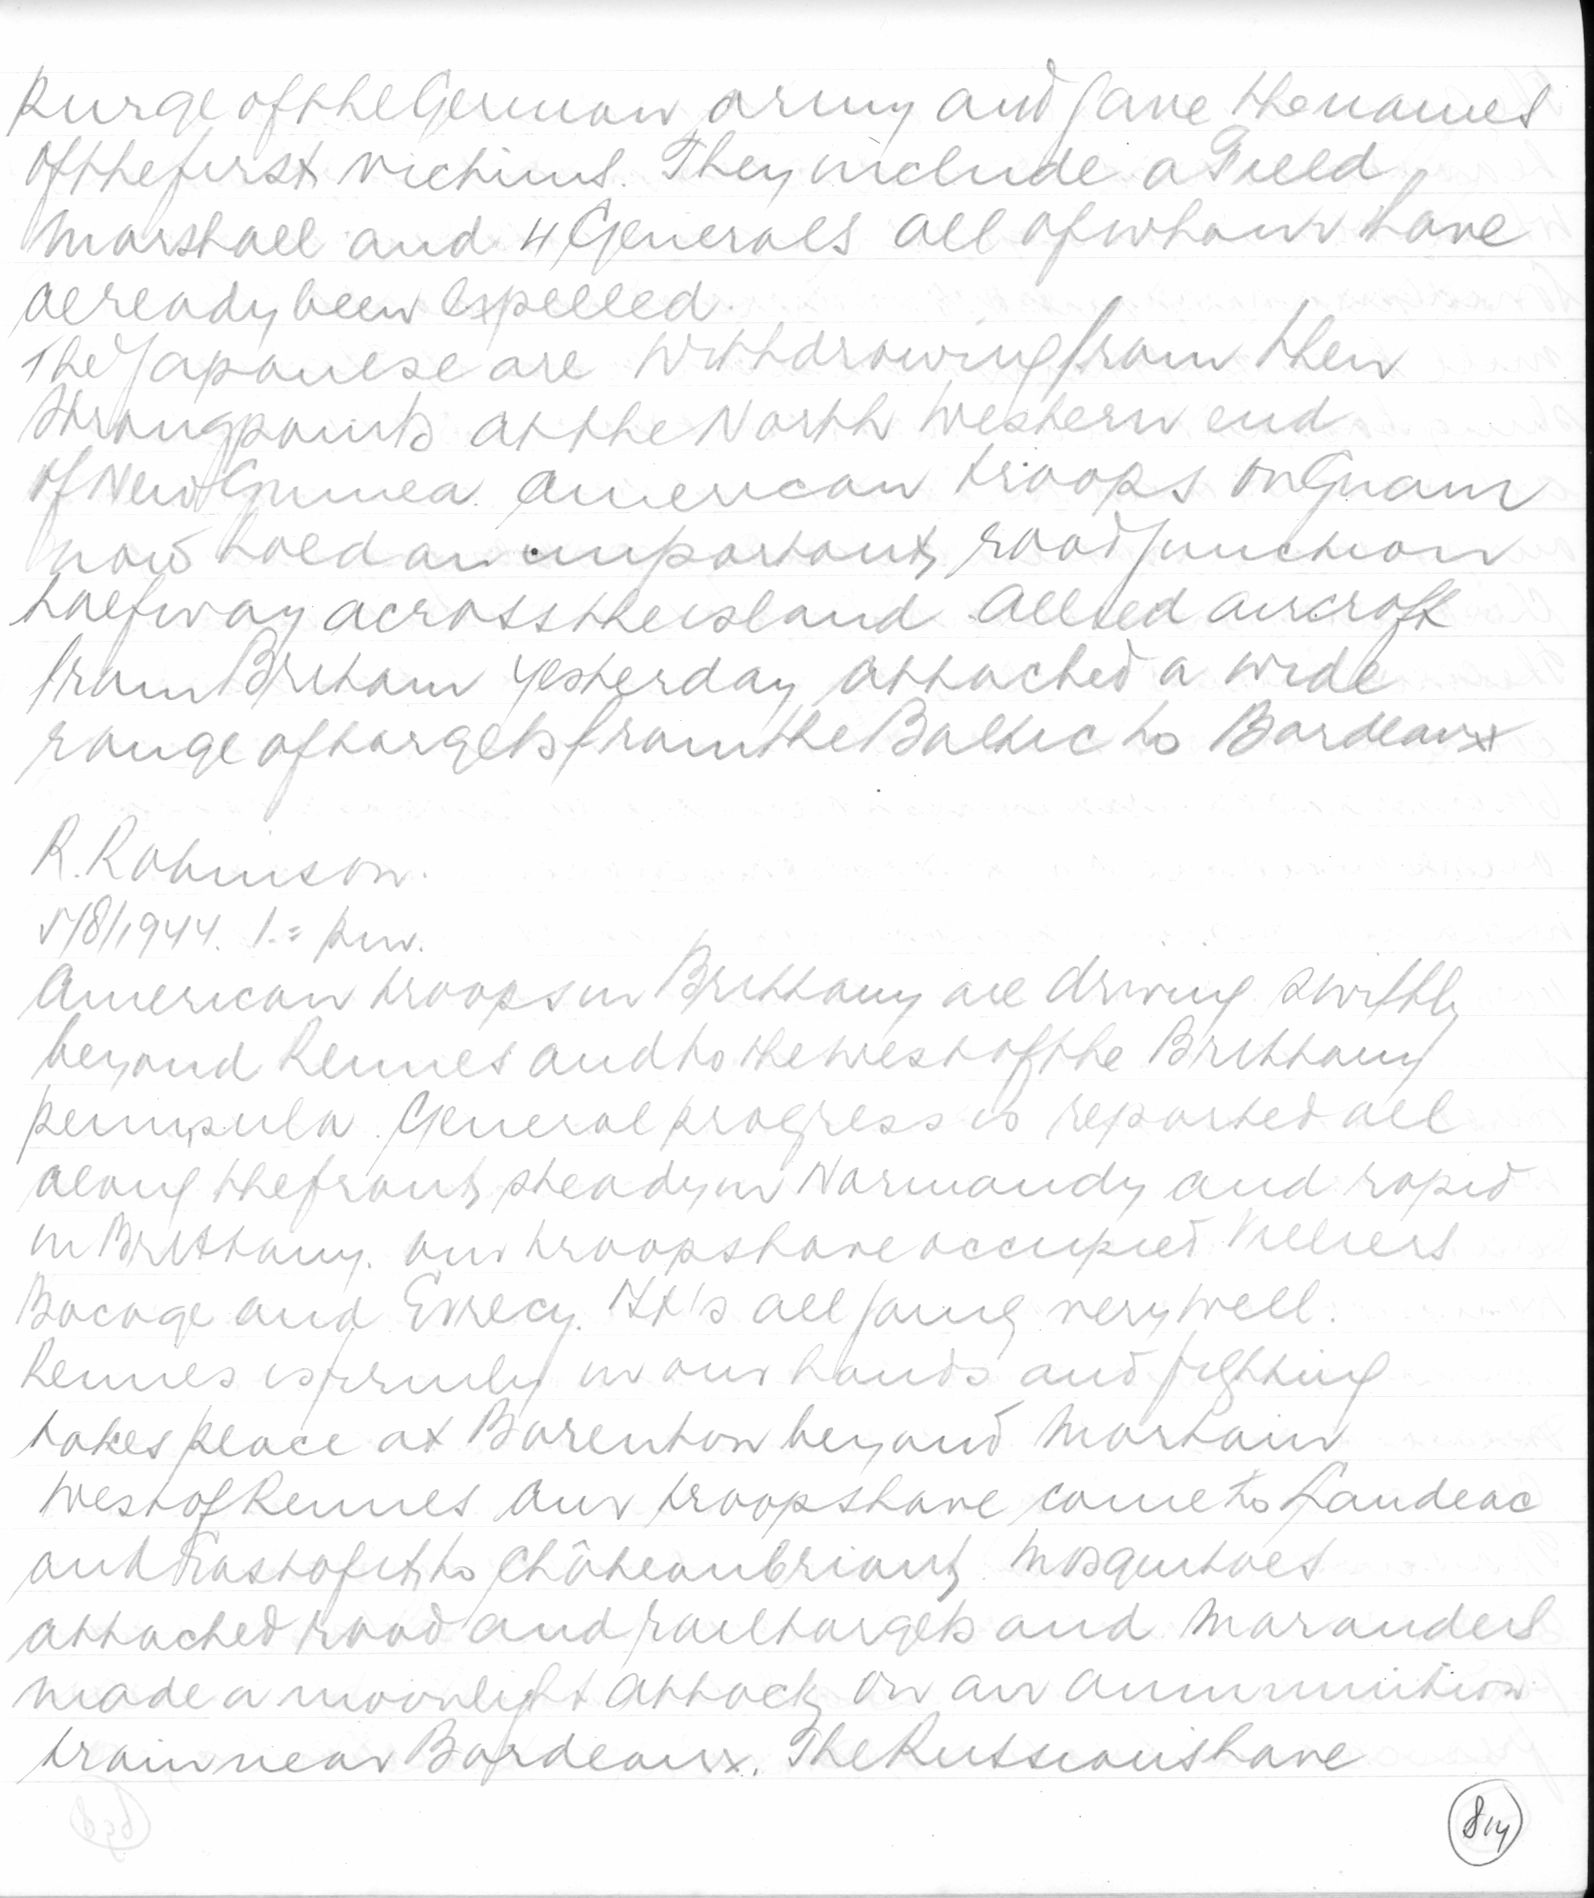 purge of the German army and gave the names
of the first victims. They include a Field
Marshall and 4 Generals all of whom have
already been expelled.
The Japanese are withdrawing from their
strongpoints at the North Western end
of New Guinea. American troops on Guam
now hold an important road junction
halfway across the island. Allied aircraft
from Britain yesterday attacked a wide
range of targets from the Baltic to Bordeaux
R. Robinson.
5/8/1944. 1.= p.m.
American troops in Brittany are driving swiftly
beyond Rennes and to the west of the Brittany
peninsula. General progress is reported all
along the front, steady in Normandy and rapid
in Brittany. Our troops have occupied Villiers
Bocage and Evrecy. It's all going very well.
Rennes is firmly in our hands and fighting
takes place at Barenton beyond Mortain
West of Rennes our troops have come to Laudeac
and East of it, to Châteaubriant. Mosquitoes
attacked road and rail targets and Marauders
made a moonlight attack on an ammunition
train near Bordeaux. The Russians have